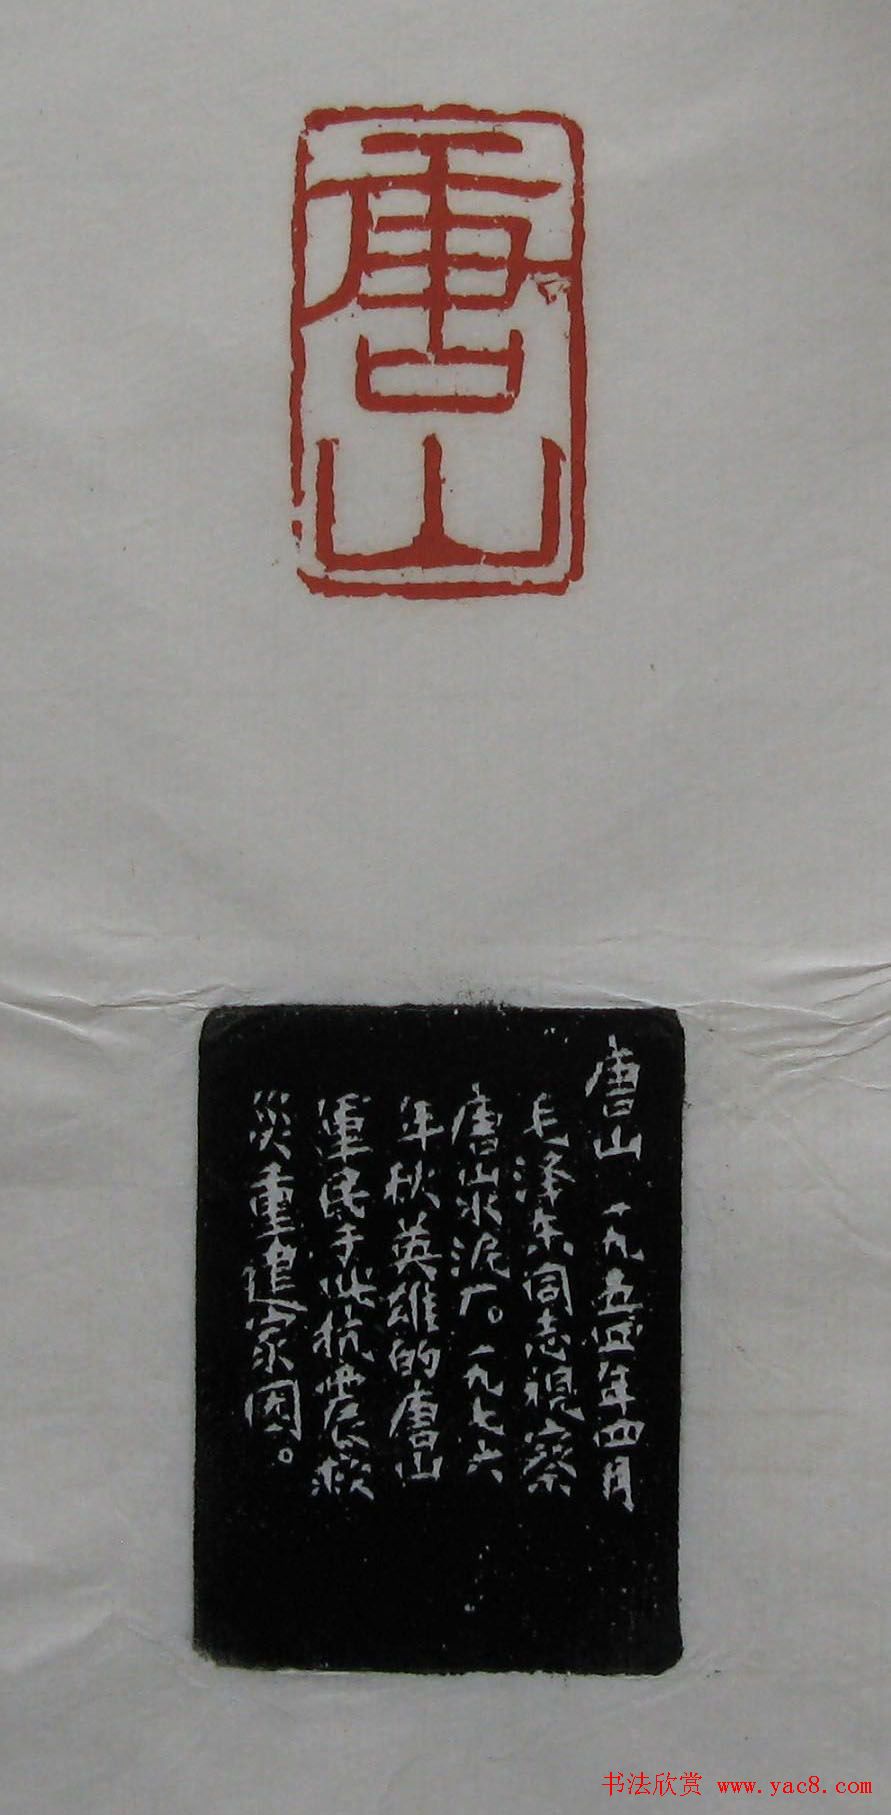 唐山
唐山 一九五四年四月
毛泽东同志視察
唐山水泥厂。一九七六
年秋英雄的唐山
軍民于此抗震救
災重建家园。
书法欣赏 www.yac8.com